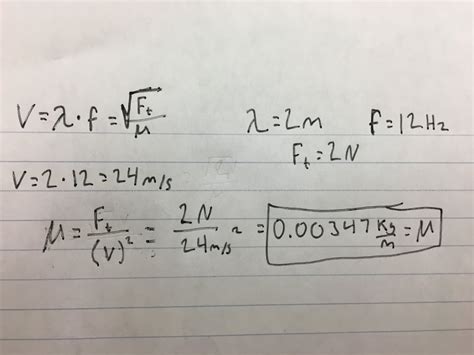 V = λ · f = √(Fₜ/μ)
λ = 2m f = 12Hz
Fₜ = 2N
V = 2 · 12 = 24 m/s
μ = Fₜ/(V)² = 2N/24m/s ² = 0.00347 kg/m = μ